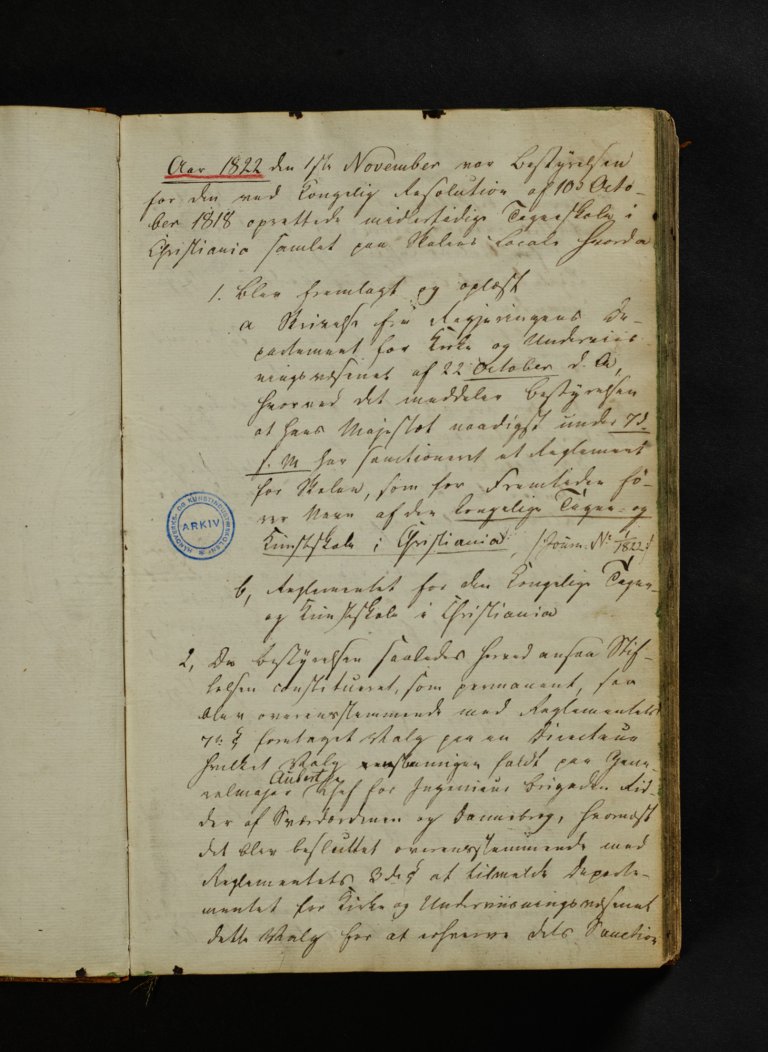 Aar 1822 den 1ste November var Bestyrelsen
for den ved Kongelig Resolution af 10d Octo-
ber 1818 oprettede midlertidige Tegneskole i
Christiania samlet paa Skolens Locale hvorda
1. Blev fremlagt og oplæst
a Skrivelse fra Regjeringens De-
partement for Kirke og Underviis-
ningsvæsenet af 22 October d. A,
hvorved det meddeler Bestyrelsen
at Hans Majestæt naadigst under 7d
f. M har sanctioneret et Reglement
for Skolen, som for Fremtiden fö-
rer Navn af den kongelige Tegne- og
Kunstskole i Christiania, (Journ. No 1/1822)
b, Reglementet for den Kongelige Tegne-
og Kunstskole i Christiania
2, Da Bestyrelsen saaledes herved ansaa Stif-
telsen constitueret, som permanent, saa
blev overensstemmende med Reglementets
7de § foretaget Valg paa en Directeur
hvilket Valg eenstemmigen faldt paa Gene-
Aubert
ralmajor Chef for Ingenieur Brigaden Rid-
der af Sværdordenen og Dannebrog, hvornæst
det blev besluttet overensstemmende med
Reglementets 3de § at tilmelde Departe-
mentet for Kirke og Underviisningsvæsenet
dette Valg for at erhverve dets Sanction
HAANDVERKS- OG KUNSTINDUSTRISKOLEN
ARKIV